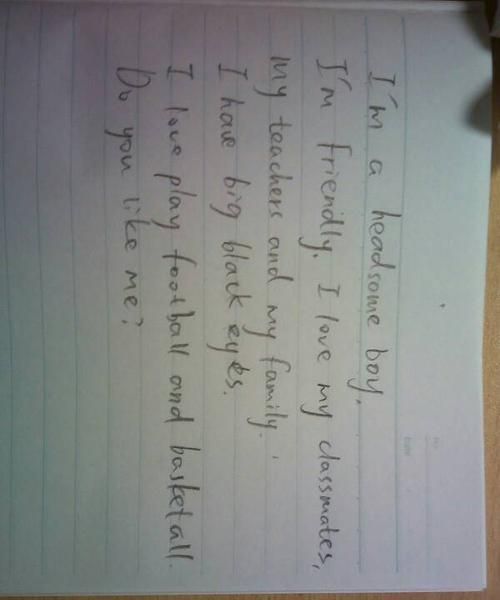 I'm a headsome boy,
I'm friendly. I love my classmates,
my teachers and my family.
I have big black eyes.
I love play football and basketall.
Do you like me?